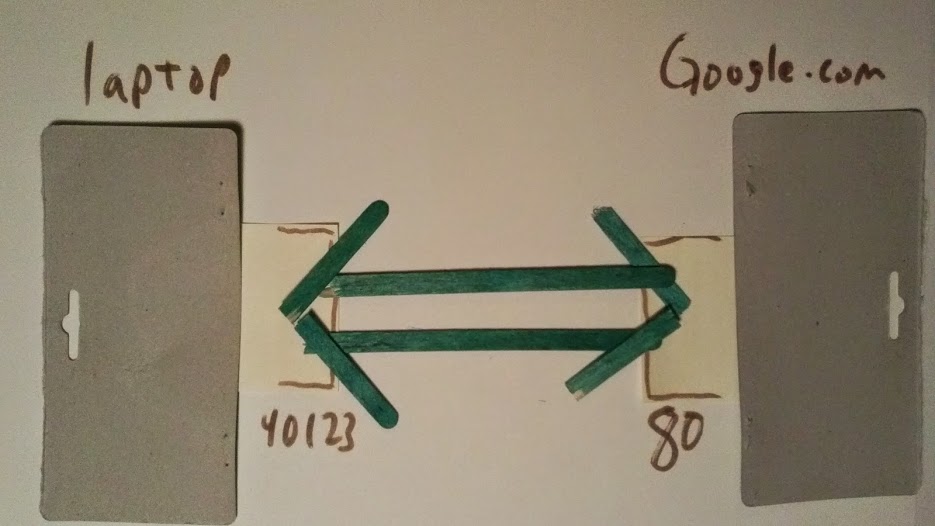 laptop
Google.com
40123
80